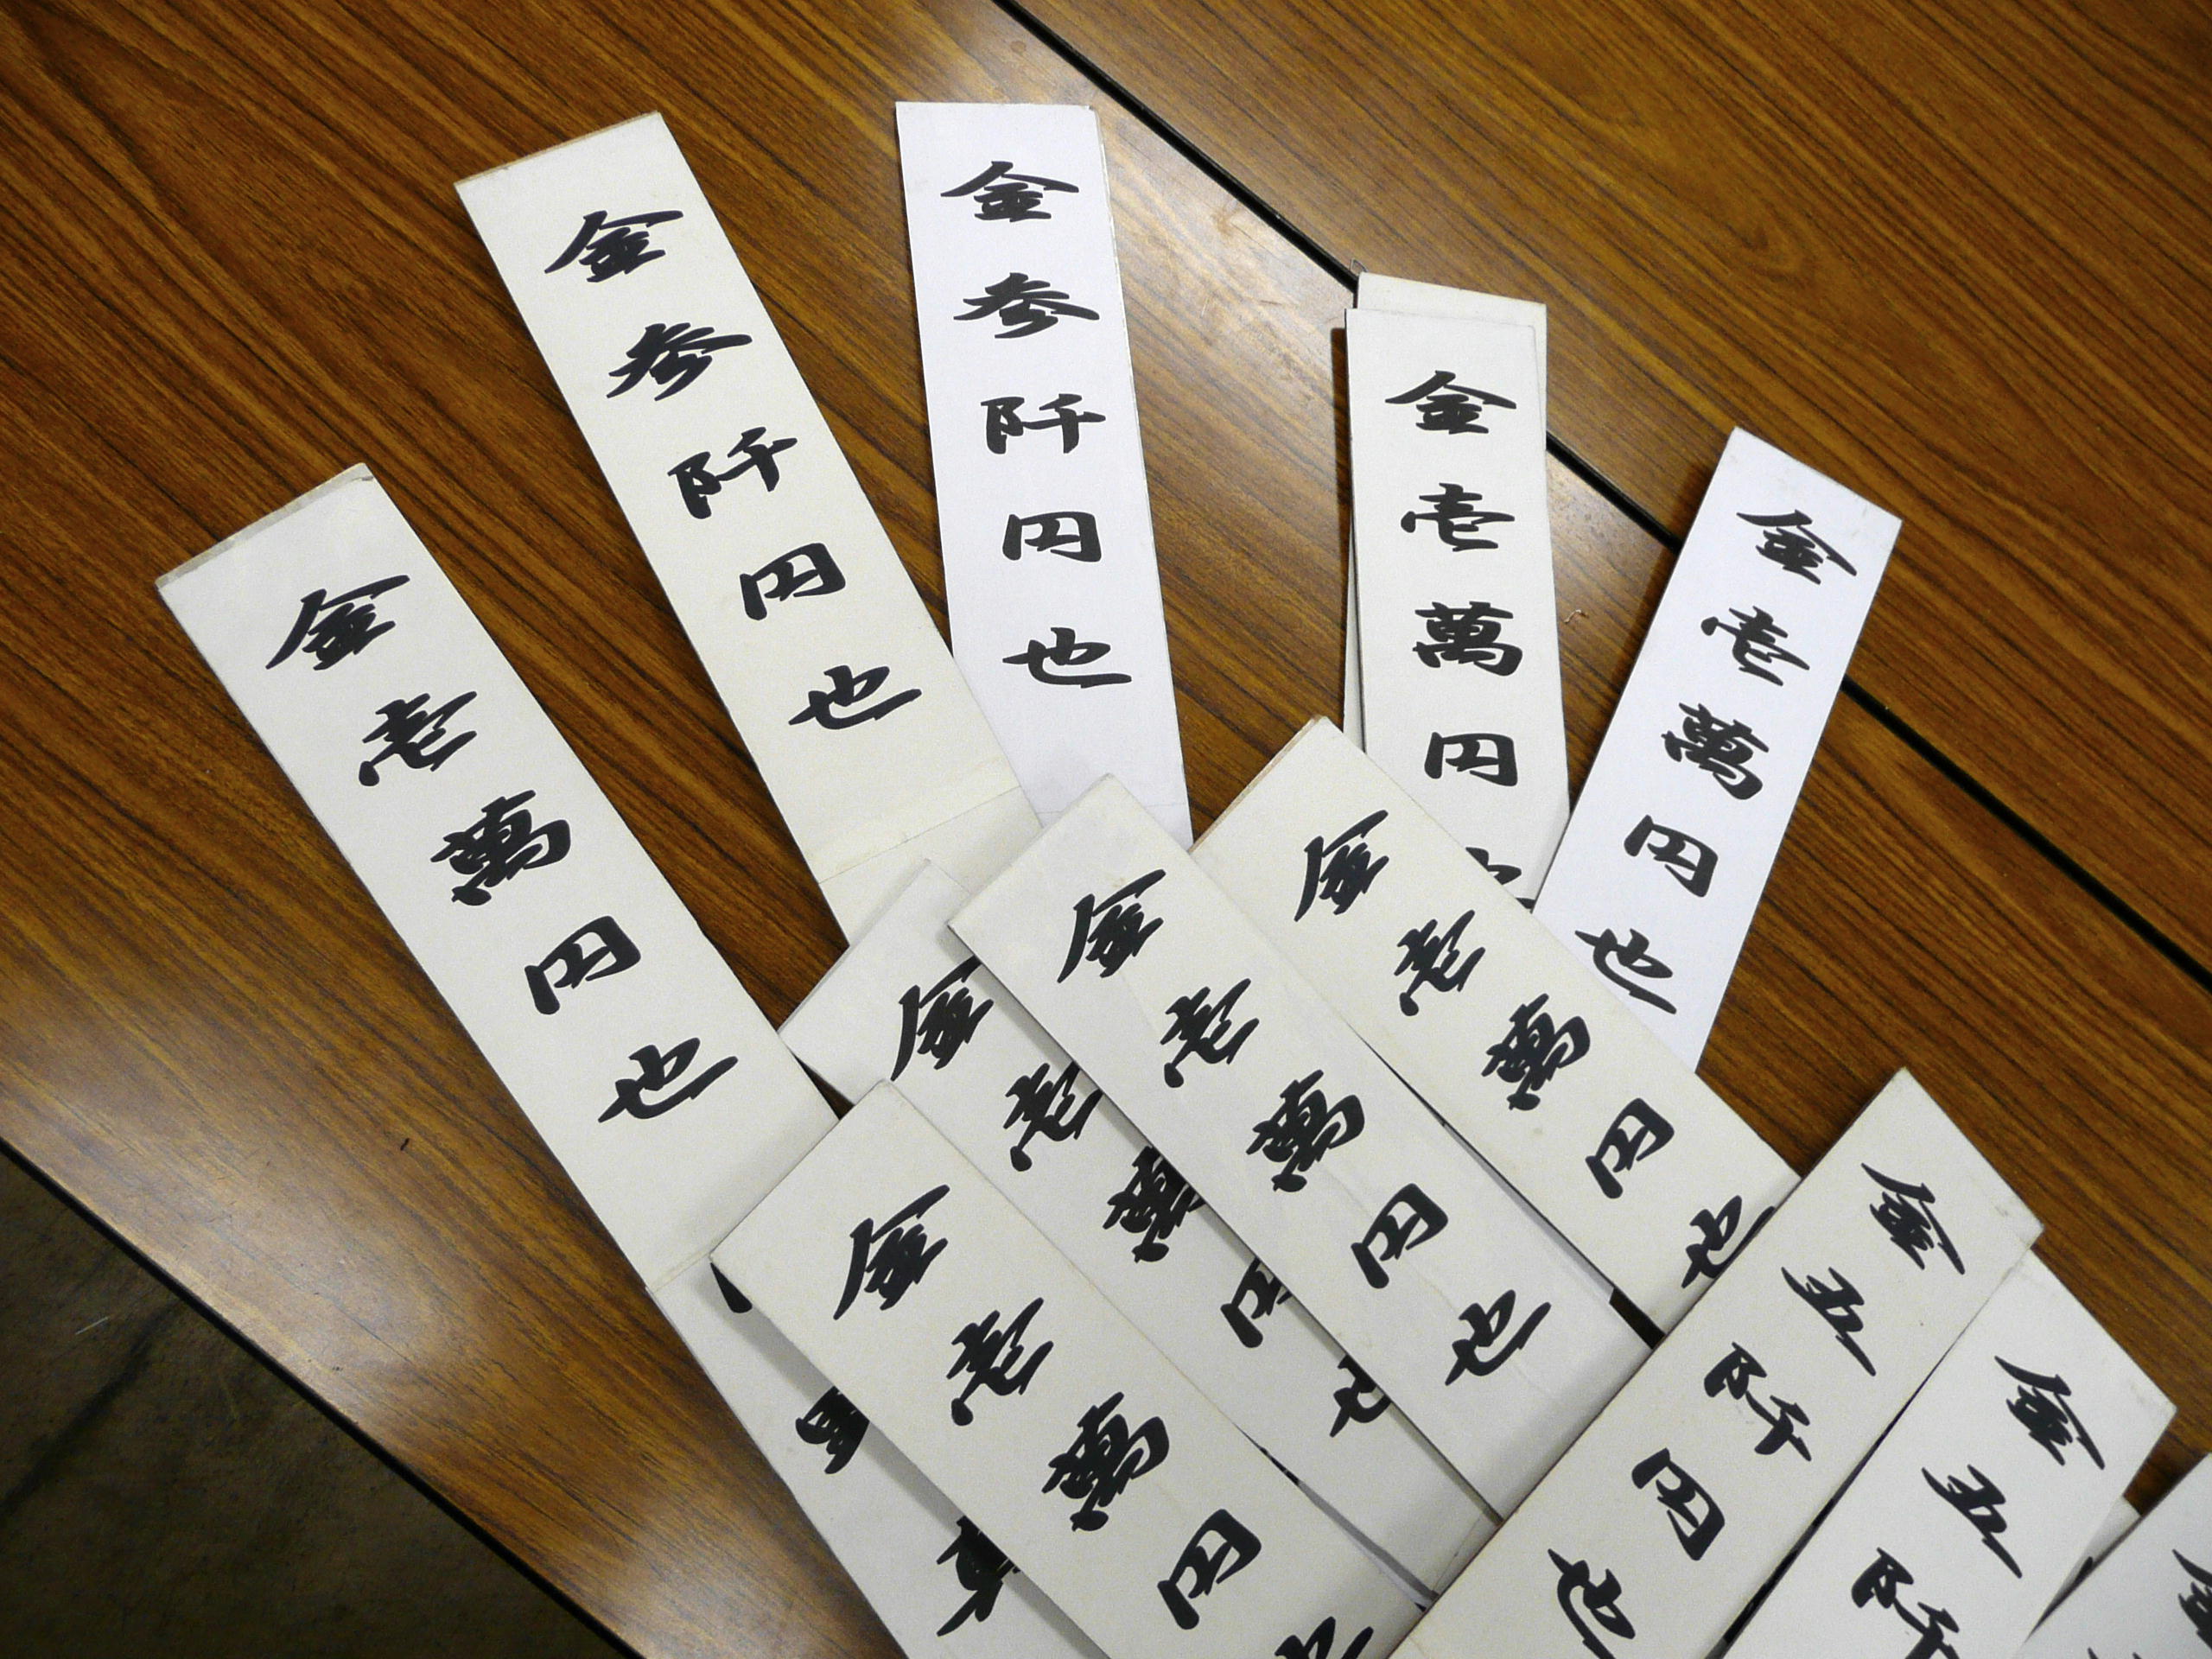 金壱萬円也
金参阡円也
金参阡円也
金壱萬円
金壱萬円也
金壱萬円也
金壱萬円也
金壱萬円也
金壱萬円
金五阡円也
金五阡